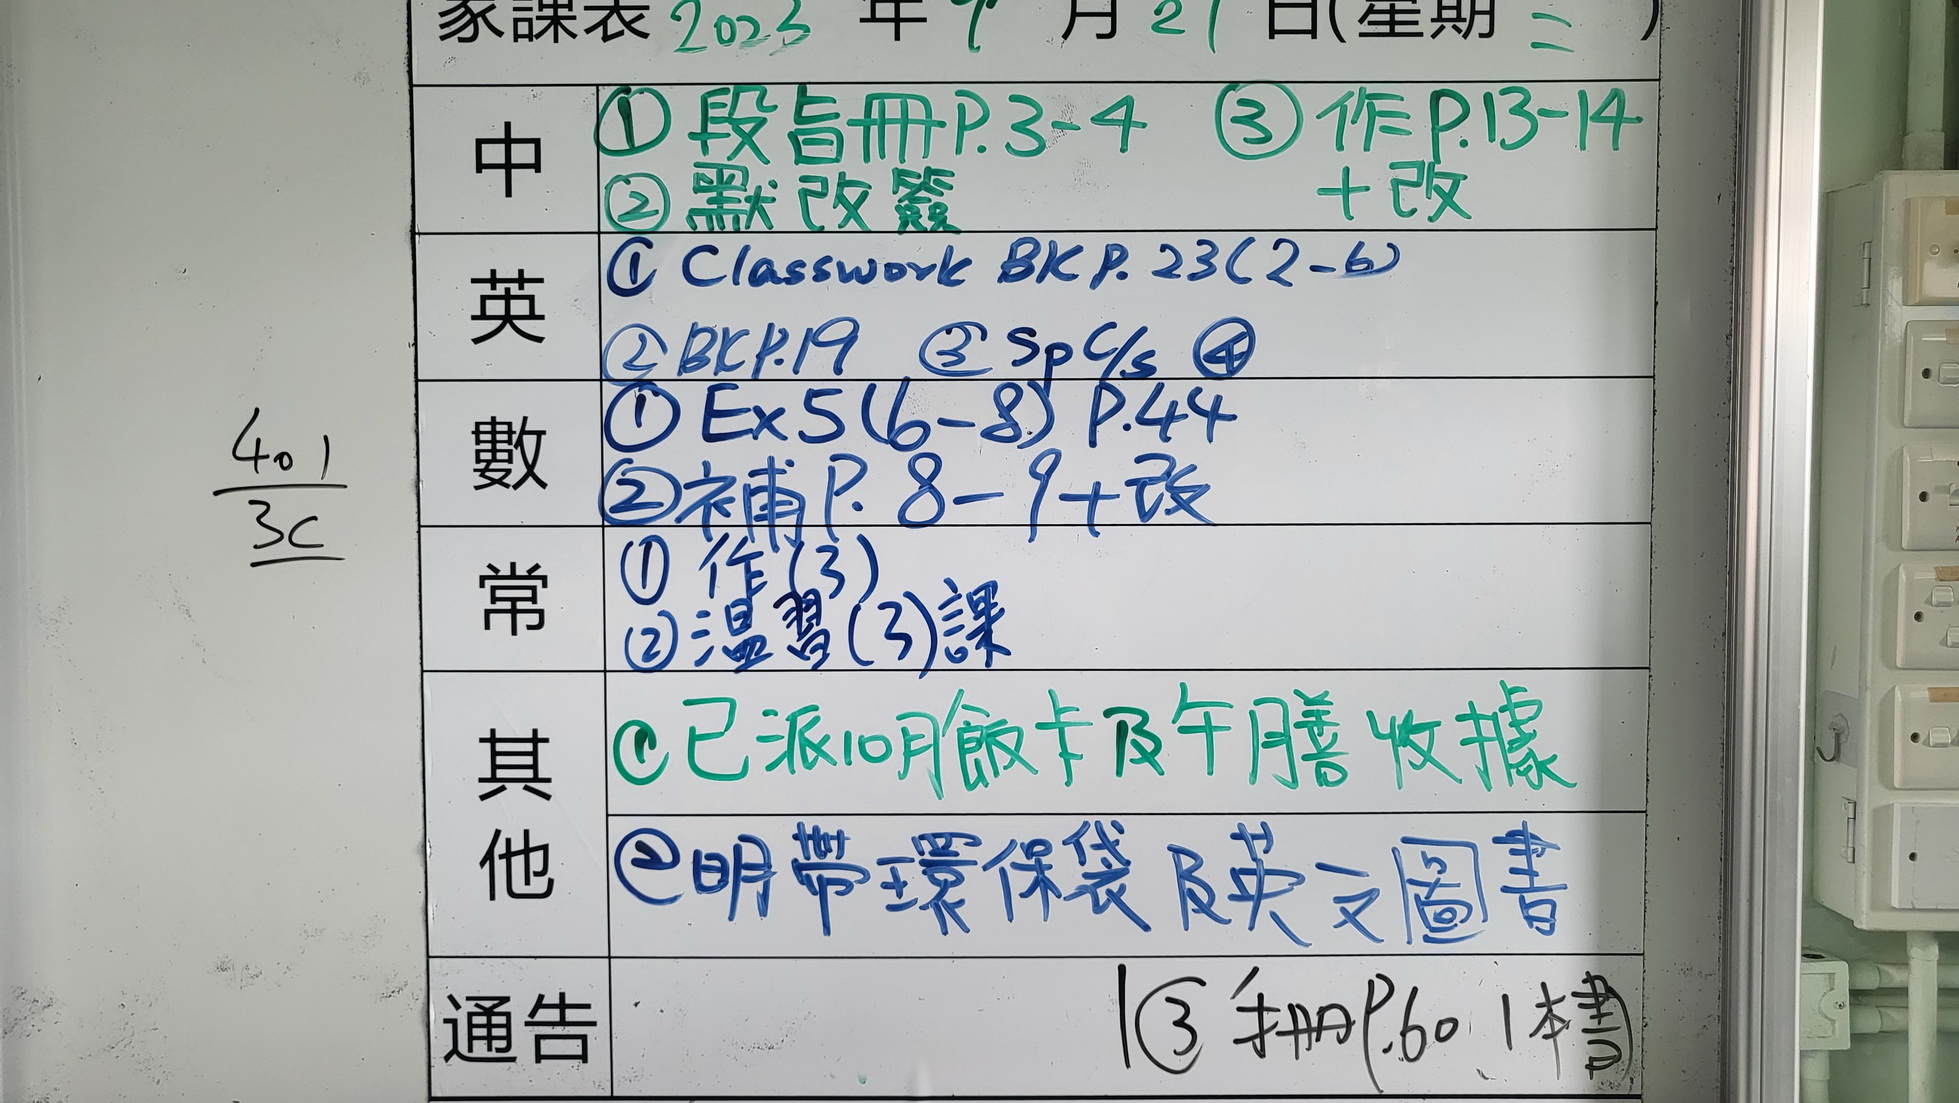 家課表 2023 年 9 月 21 日(星期 二 )
中
① 段旨冊P.3-4 ③ 作P.13-14
② 默改簽 +改
英
① Classwork BK P. 23(2-6)
② BK P.19 ③ Sp C/s ④
數
① Ex5(6-8) P.44
② 補P. 8-9+改
401
3C
常
① 作(3)
② 溫習(3)課
其他
① 已派10月飯卡及午膳收據
② 明帶環保袋及英文圖書
通告
③ 手冊P.60 1本書